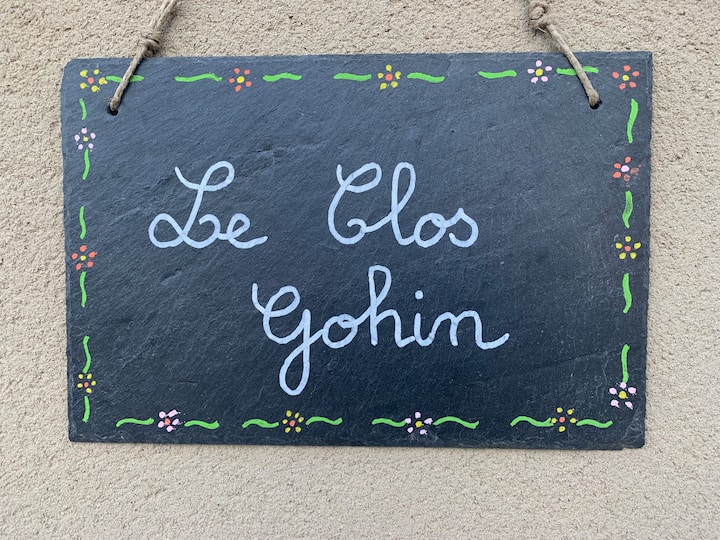 Le Clos
Gohin